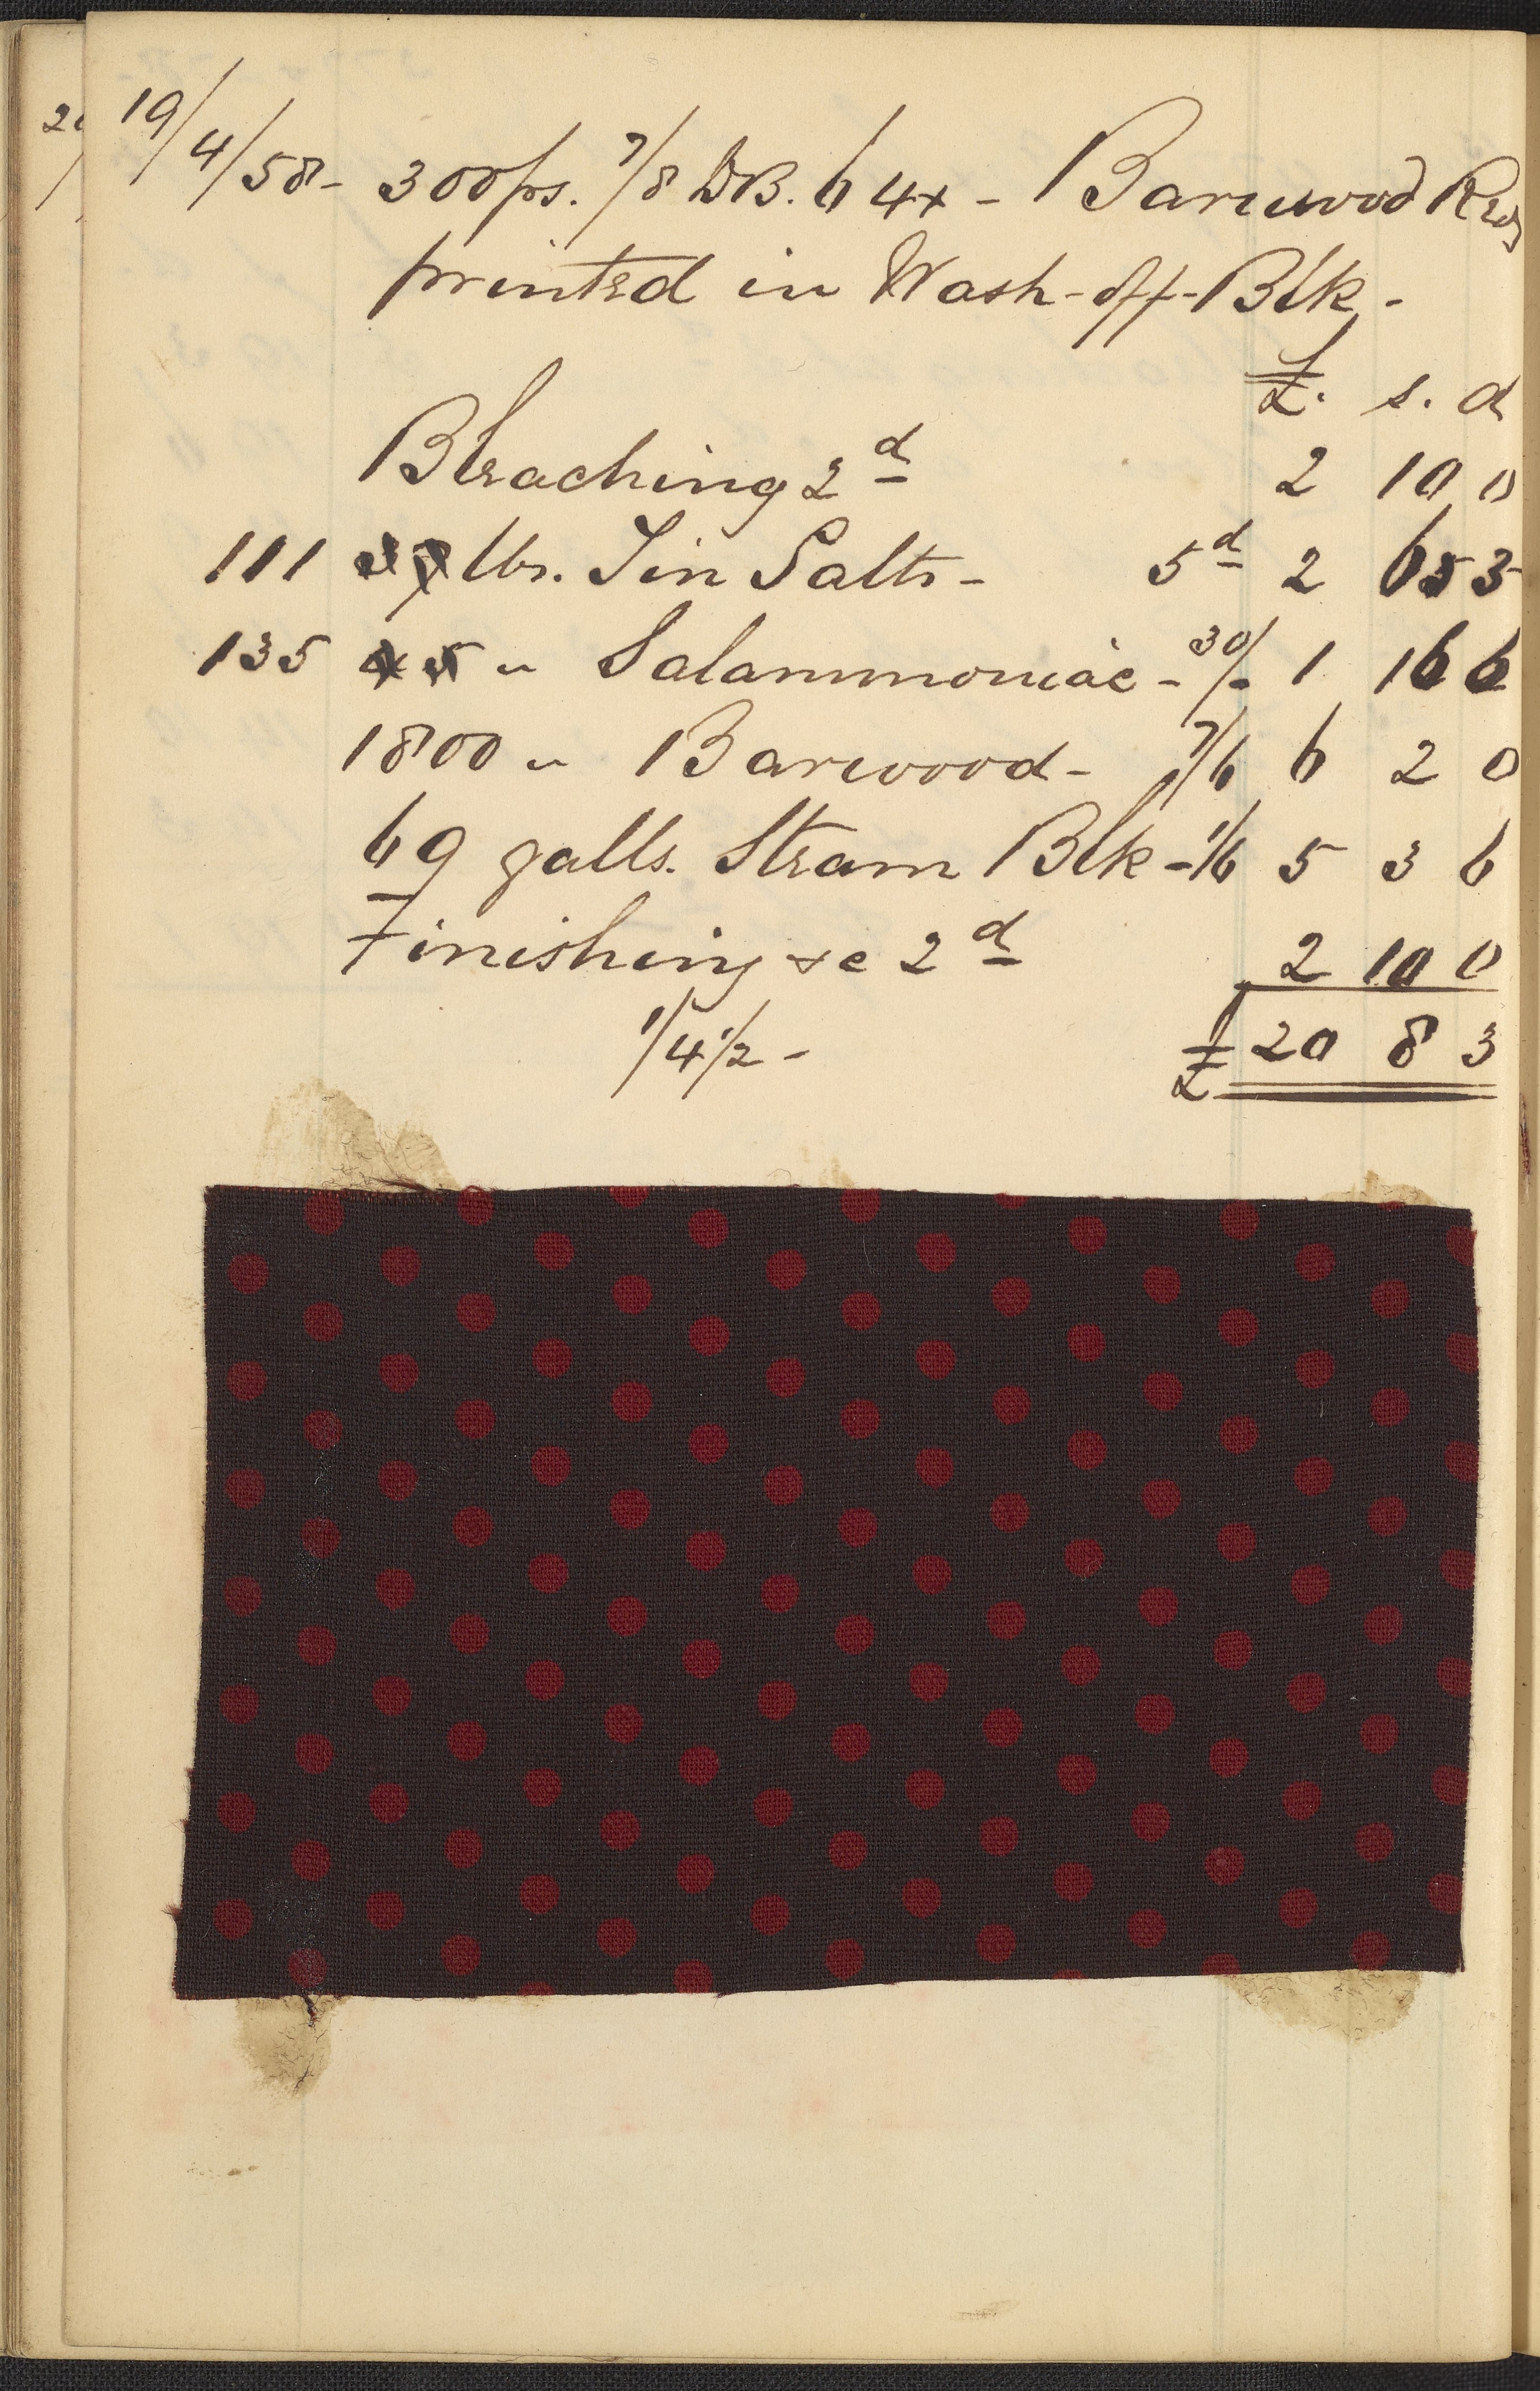 19/4/58- 300ps. 7/8 DB. 64x - Barwood Red
printed in Wash-off-Blk -
£. s. d
Bleaching 2d 2 10 0
111 37 lbs. Tin Salts - 5d 2 6 3
135 45 " Salammoniac - 30/- 1 16 6
1800 " Barwood - 7/6 6 2 0
69 galls. Steam Blk - 1/6 5 3 6
Finishing &c 2d 2 10 0
1/4 1/2 - £ 20 8 3